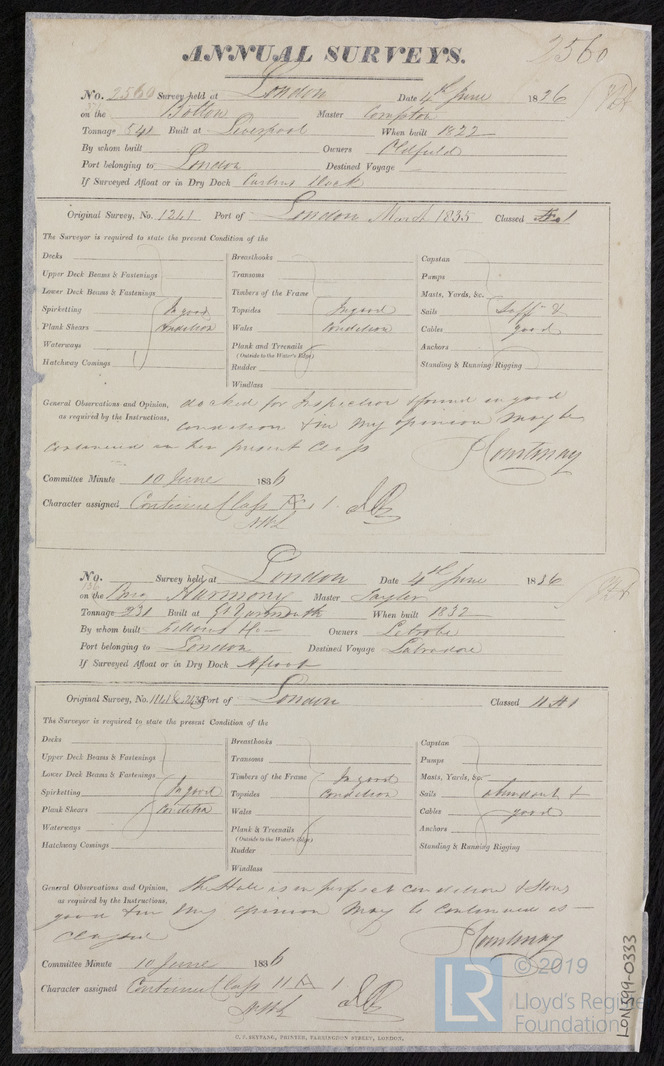 2560
ANNUAL SURVEYS.
No. 2560 Survey held at London Date 4th June 1836
on the Bolton Master Compton
Tonnage 541 Built at Liverpool When built 1822
By whom built Owners Oldfield
Port belonging to London Destined Voyage
If Surveyed Afloat or in Dry Dock Dock
Original Survey, No. 1241 Port of London March 1835 Classed 1
The Surveyor is required to state the present Condition of the
Decks Breasthooks Capstan
Upper Deck Beams & Fastenings Transoms Pumps
Lower Deck Beams & Fastenings Timbers of the Frame Masts, Yards, &c.
Spirketting In good Topsides In good Sails Sufft &
Plank Shears Condition Wales Condition Cables good
Waterways Plank and Treenails Anchors
(Outside to the Water's Edge)
Hatchway Comings Rudder Standing & Running Rigging
Windlass
General Observations and Opinion, docked for Inspection & found in good
as required by the Instructions, condition & in my opinion may be
continued in her present Class Courtenay
Committee Minute 10 June 1836
Character assigned Continued Class 1
No. Survey held at London Date 4th June 1836
136
on the Brig Harmony Master Taylor
Tonnage 231 Built at Gt Yarmouth When built 1832
By whom built Owners Latrobe
Port belonging to London Destined Voyage Labradore
If Surveyed Afloat or in Dry Dock Afloat
Original Survey, No. Port of London Classed A1
The Surveyor is required to state the present Condition of the
Decks Breasthooks Capstan
Upper Deck Beams & Fastenings Transoms Pumps
Lower Deck Beams & Fastenings Timbers of the Frame In good Masts, Yards, &c.
Spirketting In good Topsides Condition Sails abundant &
Plank Shears Condition Wales Cables good
Waterways Plank & Treenails Anchors
(Outside to the Water's Edge)
Hatchway Comings Rudder Standing & Running Rigging
Windlass
General Observations and Opinion, the Hole is in perfect condition & Stores
as required by the Instructions,
good & in my opinion may be continued as
Classed Courtenay
Committee Minute 10 June 1836
Character assigned Continued Class A 1
C. F. SEYFANG, PRINTER, FARRINGDON STREET, LONDON.
LON599-0333
LR
© 2019
Lloyd's Register
Foundation